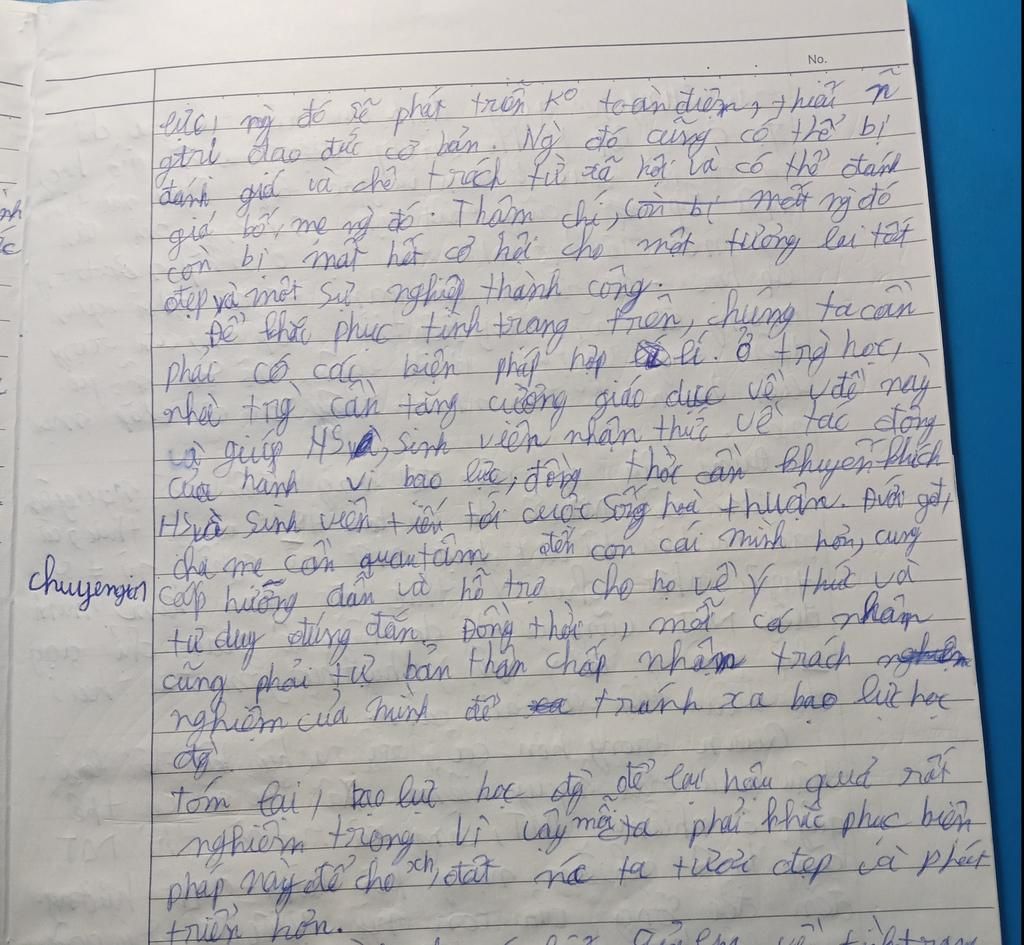 No.
lực, ng đó sẽ phát triển ko toàn diện, thiếu n~
gtrị đạo đức cơ bản. Ng đó cũng có thể bị
đánh giá và chê trách từ xã hội và có thể đánh
giá bố, mẹ ng đó. Thậm chí, còn bị mất ng đó
còn bị mất hết cơ hội cho một tương lai tốt
đẹp và một sự nghiệp thành công.
Để khắc phục tình trạng trên, chúng ta cần
phải có các biện pháp hợp lí. Ở trg học,
nhà trg cần tăng cường giáo dục về vđề này
và giúp HS và sinh viên nhận thức về tác động
của hành vi bạo lực, đồng thời cần khuyến khích
HS và sinh viên tiến tới cuộc sống hoà thuận. Dưới gđ,
cha mẹ cần quan tâm đến con cái mình hơn, cung
chuyengin cấp hướng dẫn và hỗ trợ cho họ về ý thức và
tư duy đúng đắn. Đồng thời, mỗi cá nhâm
cũng phải tự bản thân chấp nhận trách nghiệm
nghiệm của mình để xa tránh xa bạo lực học
đg
Tóm lại, bạo lực học đg để lại hậu quả rất
nghiêm trọng. Vì vậy mỗi ta phải khắc phục biện
pháp này để cho xh, đất nc ta tươi đẹp và phát
triển hơn.